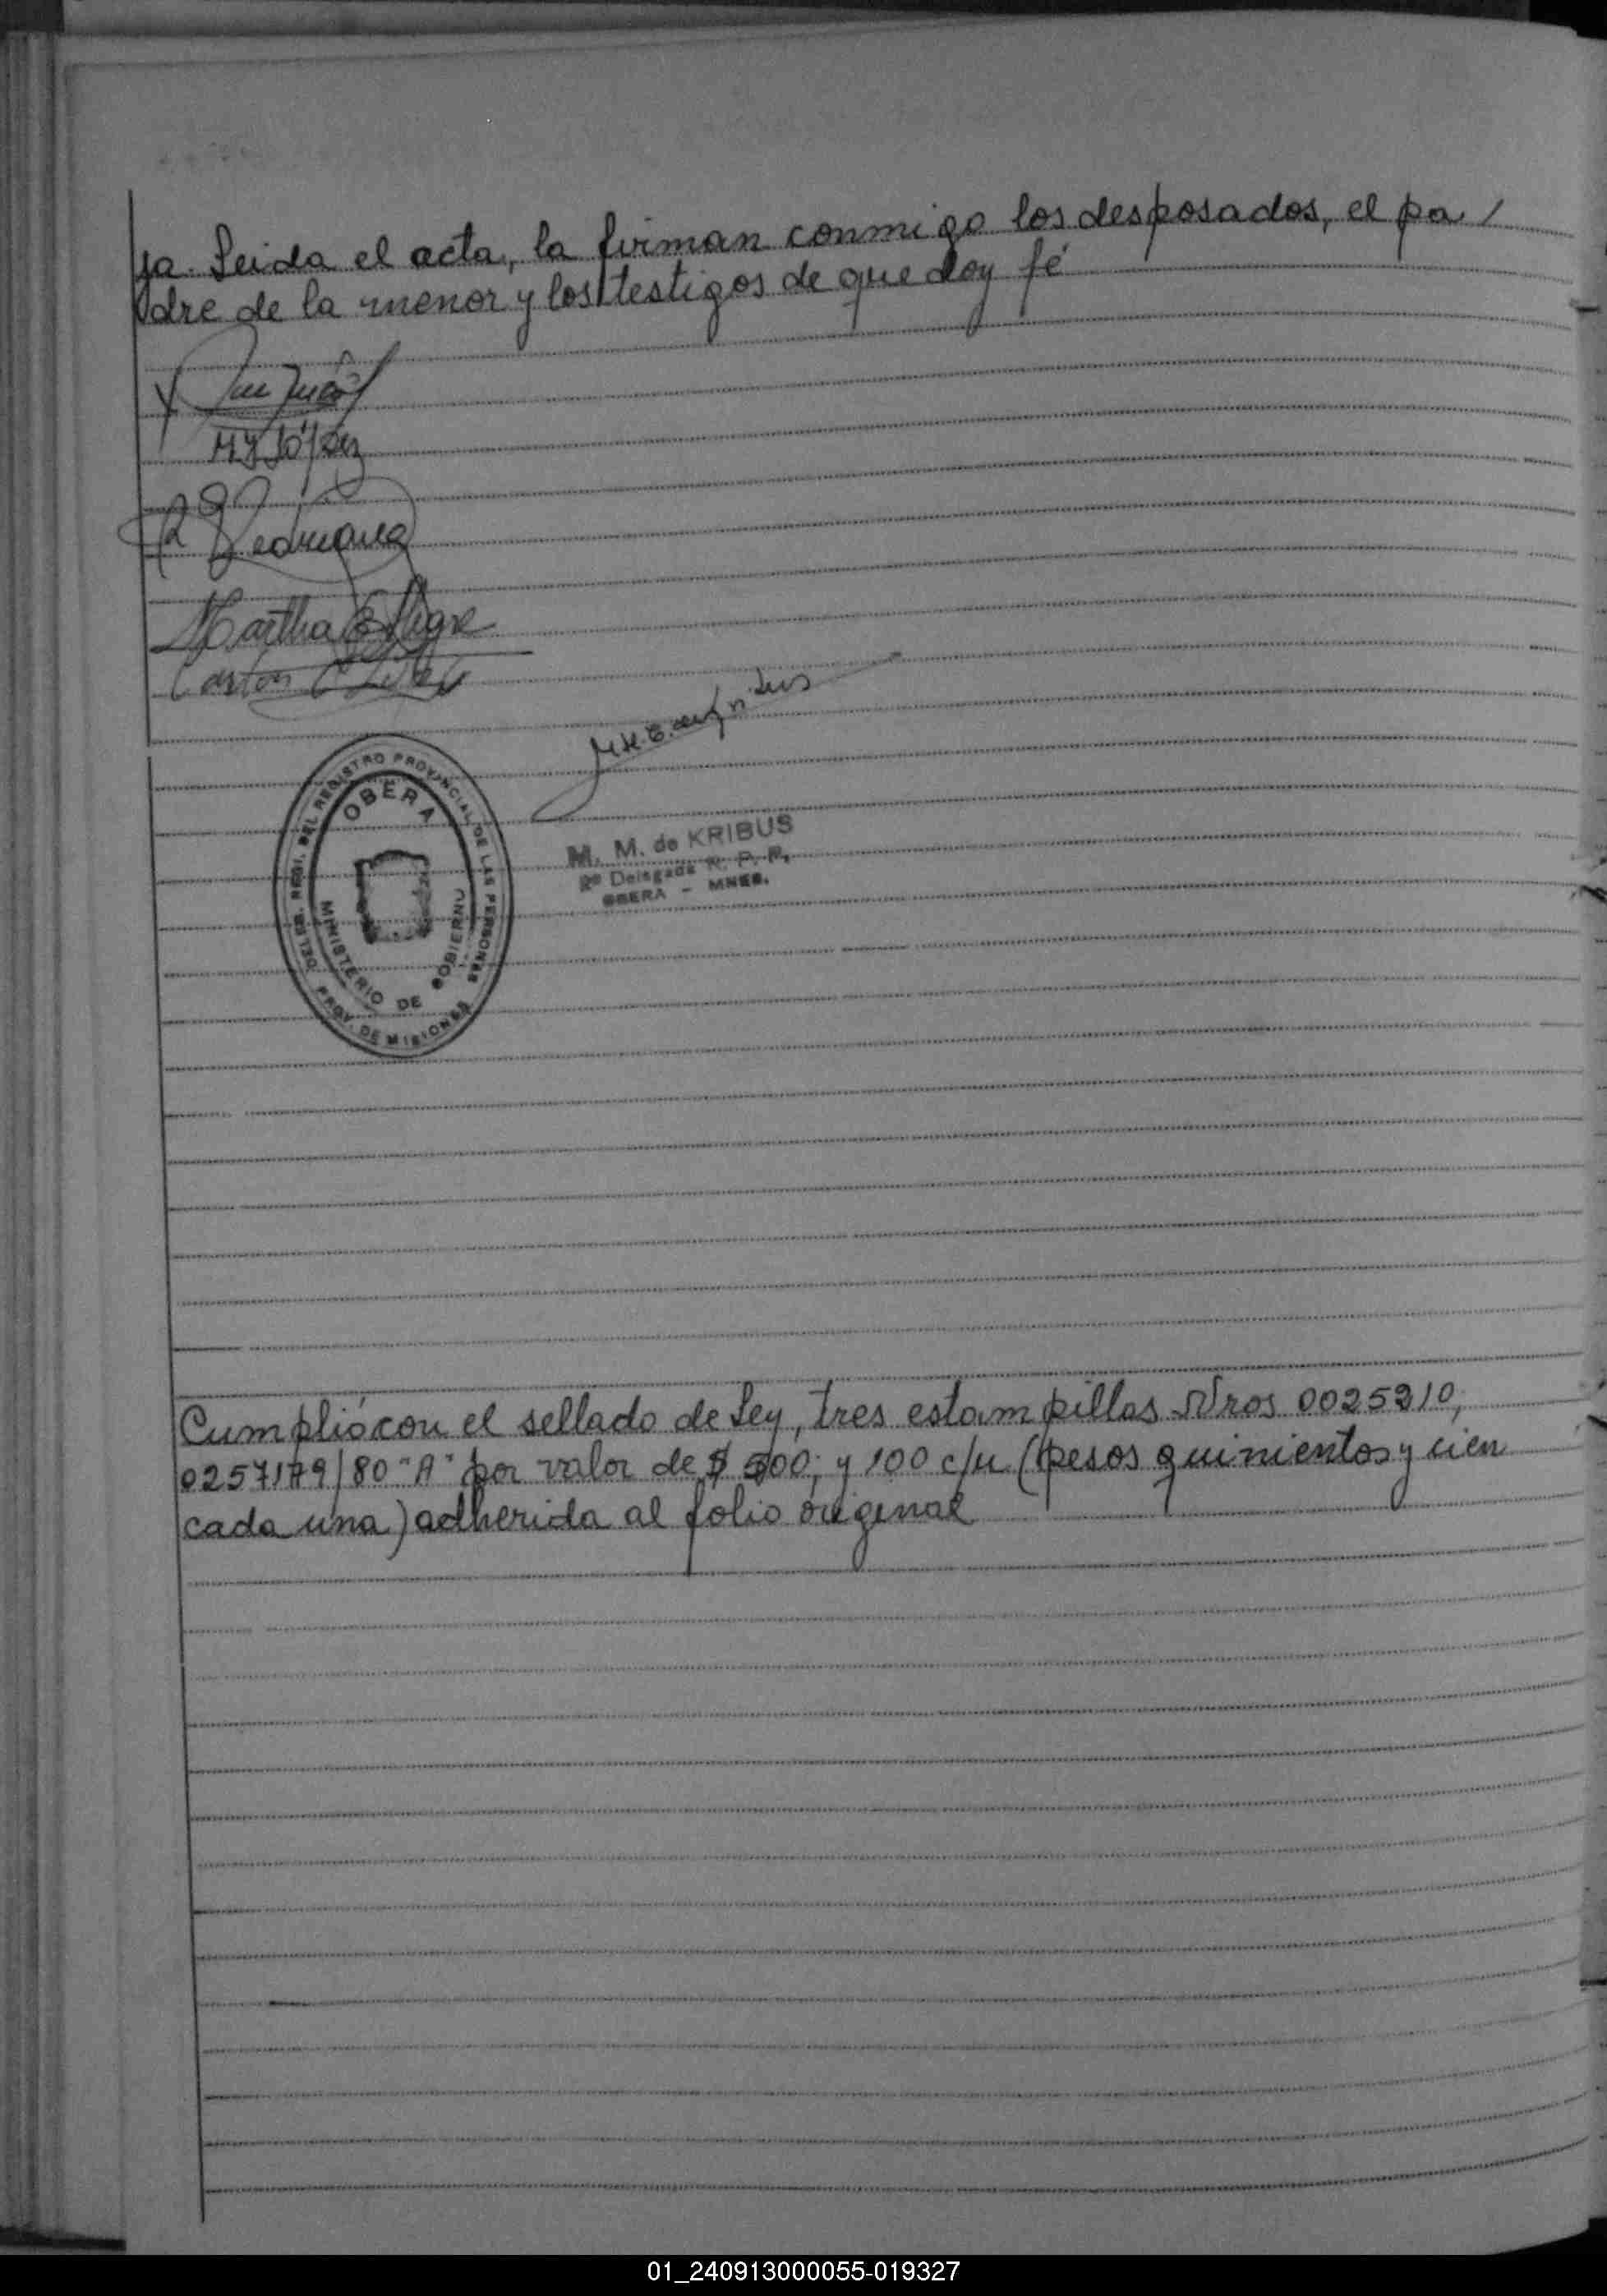 ja. Leida el acta, la firman conmigo los desposados, el pa/
dre de la menor y los testigos de que doy fé
Martha
OBERA
DEL REGISTRO PROVINCIAL DE LAS PERSONAS
MINISTERIO DE GOBIERNO
PROV. DE MISIONES
M. M. de KRIBUS
2º Delegada R. P. P.
OBERA - MNES.
Cumplió con el sellado de Ley, tres estampillas Nros 0025210,
0257179/80 "A" por valor de $ 500, y 100 c/u (pesos quinientos y cien
cada una) adherida al folio original
01_240913000055-019327